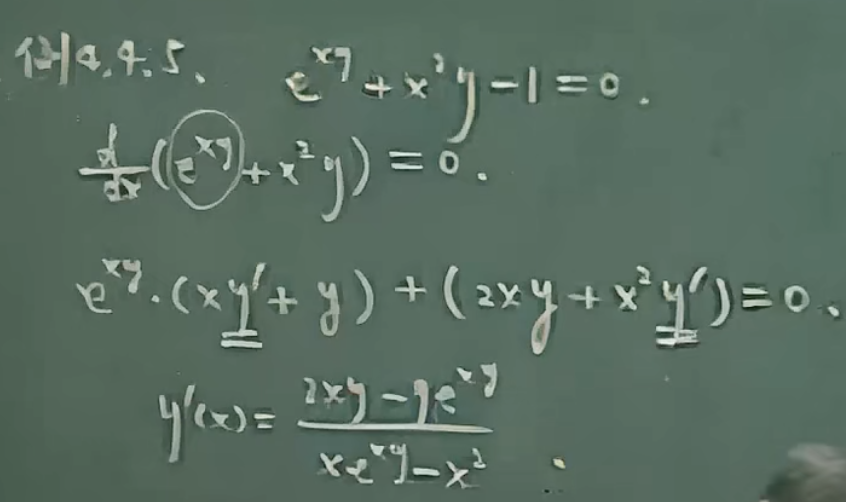 例4.4.5. e^{xy} + x²y - 1 = 0.
d/dx (e^{xy} + x²y) = 0.
e^{xy} · (xy' + y) + (2xy + x²y') = 0.
y'(x) = \frac{2xy - ye^{xy}}{xe^{xy} - x²}.